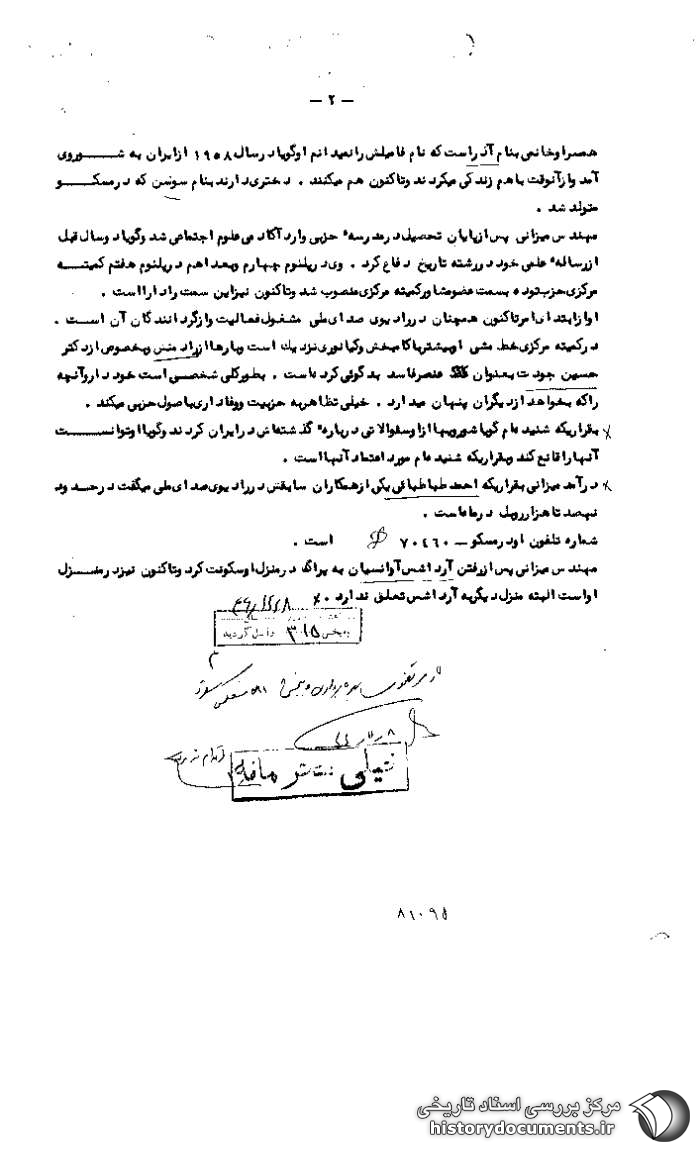 — ۲ —
همسر او خانمی بنام آذر است که نام فامیلش را نمیدانم او گویا در سال ۱۹۵۸ از ایران به شوروی
آمد و از آنوقت با هم زندگی میکردند و تاکنون هم میکنند . دختری دارند بنام سوسن که در مسکو
متولد شد .
مهندس میزانی پس از پایان تحصیل در مدرسهٔ حزبی وارد آکادمی علوم اجتماعی شد و گویا دو سال قبل
از رسالهٔ علمی خود در رشته تاریخ دفاع کرد . وی در پلنوم چهارم و بعدا هم در پلنوم هفتم کمیته
مرکزی حزب توده بسمت عضو مشاور کمیته مرکزی منصوب شد و تاکنون نیز این سمت را دارا است .
او از ابتدای امر تاکنون همچنان در رادیوی صدای ملی مشغول فعالیت و از گردانندگان آن است .
در کمیته مرکزی خط مشی او بیشتر با کامبخش و کیانوری نزدیک است و بارها از رادمنش و بخصوص از دکتر
حسین جودت بعنوان عنصر فاسد بدگوئی کرده است . بطور کلی شخصی است خوددار و آنچه
را که بخواهد از دیگران پنهان میدارد . خیلی تظاهر به حزبیت و وفاداری باصول حزبی میکند .
بقراریکه شنیده ام گویا شورویها از او سئوالاتی دربارهٔ گذشته اش در ایران کردند و گویا او توانست
آنها را قانع کند و بقراریکه شنیده ام مورد اعتماد آنها است .
درآمد میزانی بقراریکه احمد طباطبائی یکی از همکاران سابقش در رادیوی صدای ملی میگفت در حدود
نهصد تا هزار روبل در ماه است .
شماره تلفون او در مسکو — ۷۰۴۶۰ است .
مهندس میزانی پس از رفتن آرداشس آوانسیان به پراگ در منزل او سکونت کرد و تاکنون نیز در منزل
او است البته منزل دیگر به آرداشس تعلق ندارد .
ببخش ۳۱۵ واصل گردید
۸۱۰۹۵
مرکز بررسی اسناد تاریخی
historydocuments.ir